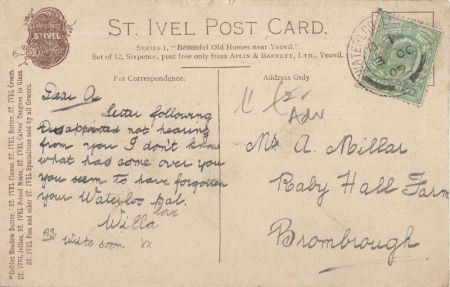 ST. IVEL POST CARD.
SERIES 1, "Beautiful Old Homes near Yeovil."
Set of 12, Sixpence, post free only from APLIN & BARRETT, LTD., Yeovil.
ST. IVEL
"Golden Meadow Butter, ST. IVEL Cheese, ST. IVEL Butter, ST. IVEL Cream,
ST. IVEL Jellies, ST. IVEL Potted Meats, ST. IVEL Calves' Tongues in Glass,
ST. IVEL Pies and other ST. IVEL Specialities sold by all Grocers.
For Correspondence.
Dear A
letter following
Disappointed not hearing
from you I don't know
what had come over you
you seem to have forgotten
your Waterloo pal.
love
Willa
P.S. write soon xx
Address Only
WATERLOO
OC
09
Adv
Mr A. Millar
Raby Hall Farm
Brombrough